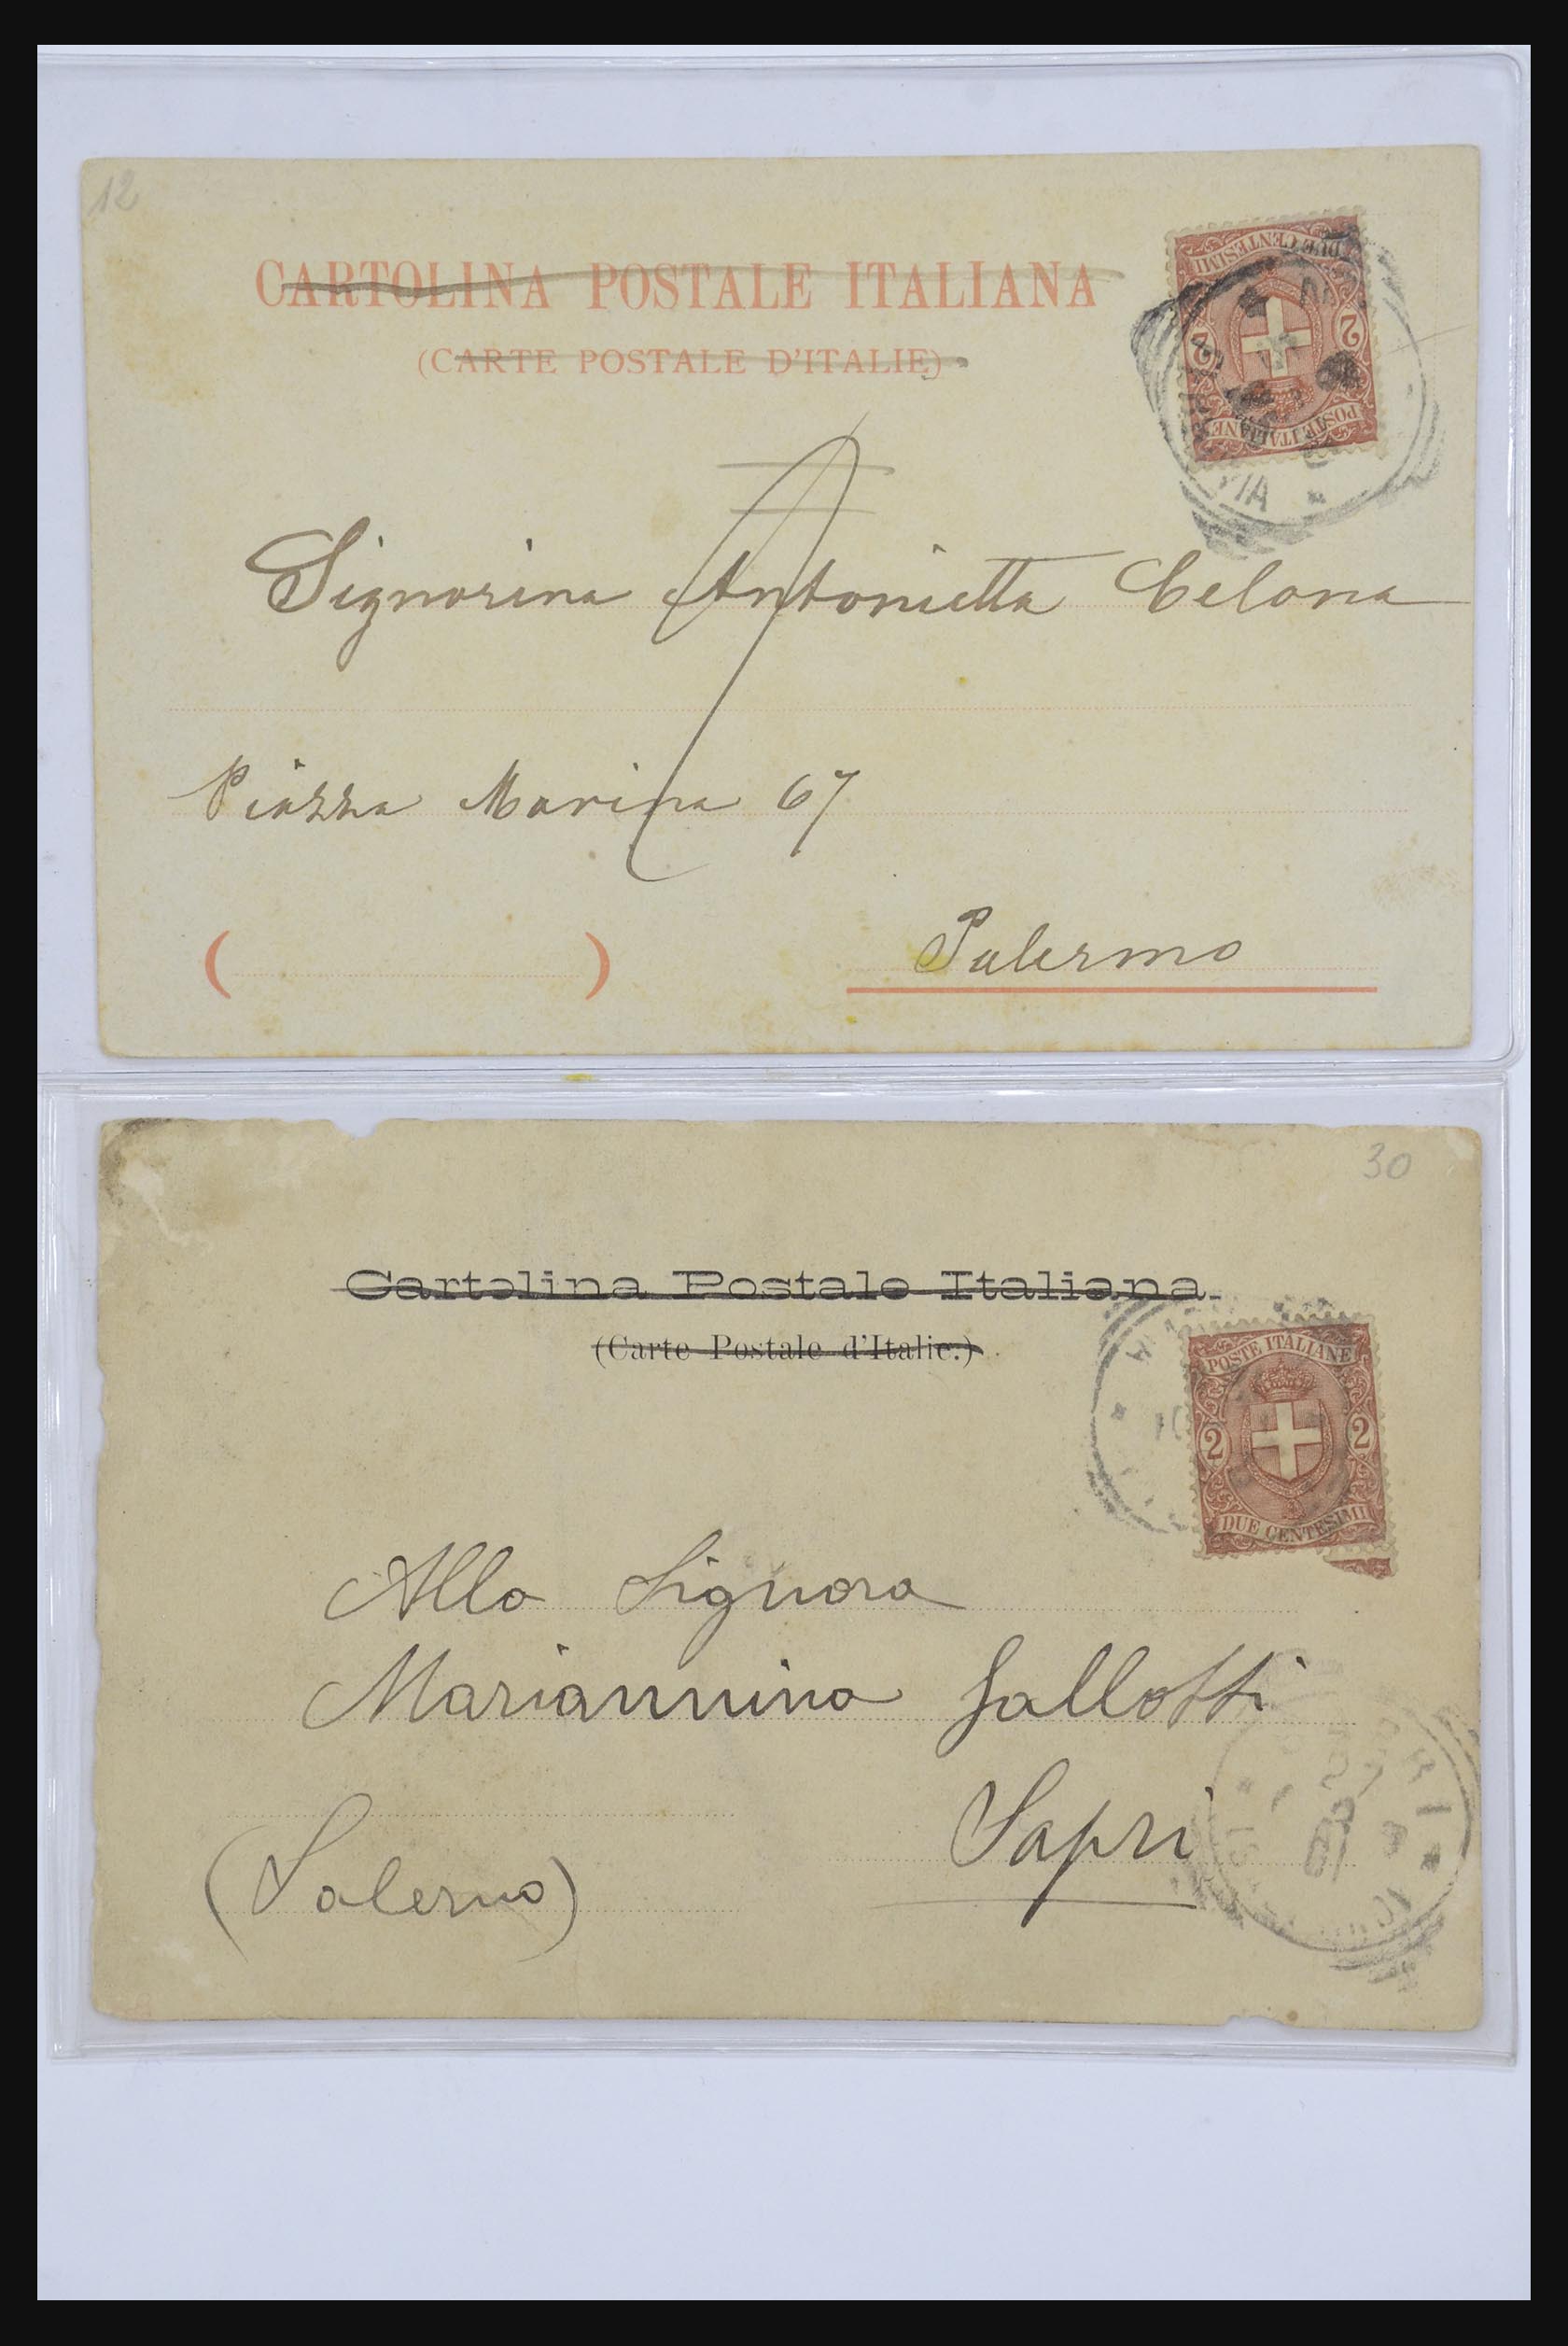 12
CARTOLINA POSTALE ITALIANA
(CARTE POSTALE D'ITALIE)
DUE CENTESIMI
2 2
POSTE ITALIANE
Signorina Antonietta Celona
Piazza Marina 67
( )
Palermo
30
Cartolina Postale Italiana
(Carte Postale d'Italie.)
POSTE ITALIANE
2 2
DUE CENTESIMI
Alla Signora
Mariannina Gallotti
Sapri
(Salerno)